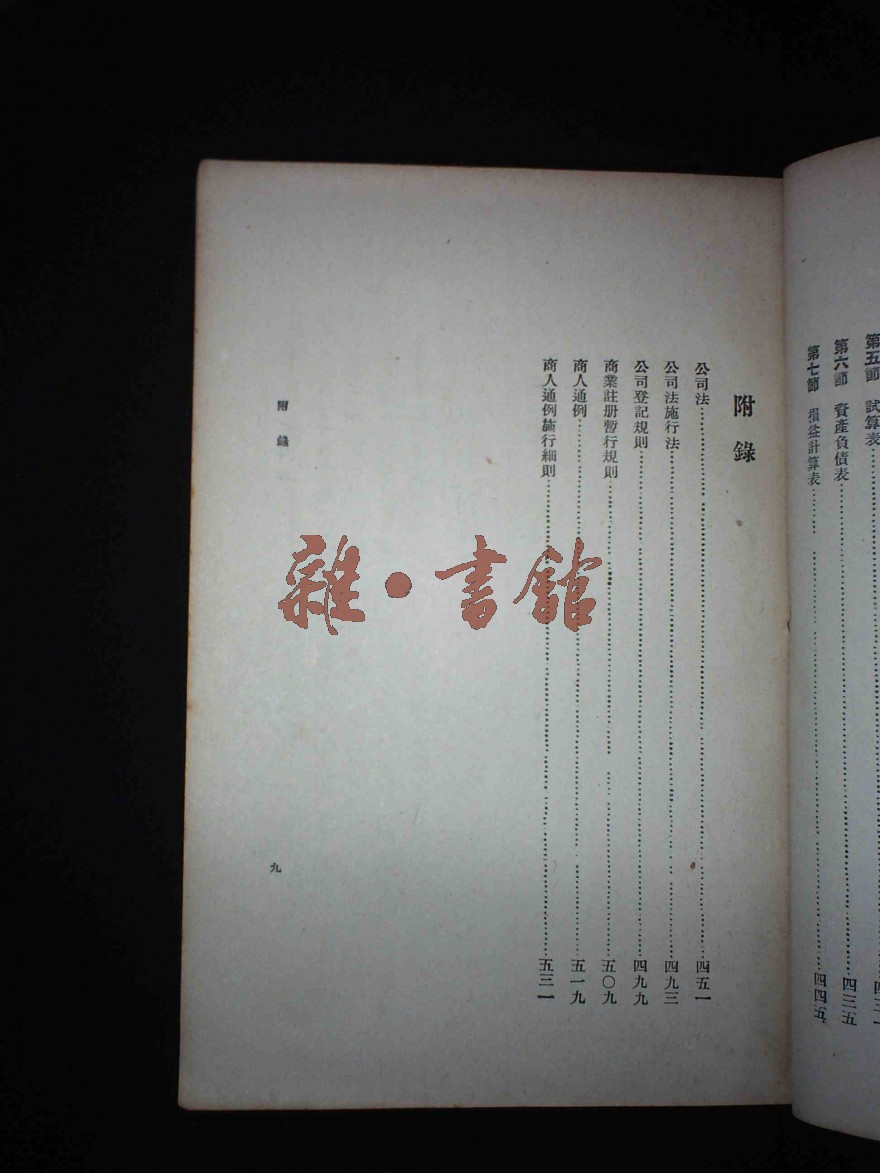 第五節 試算表
第六節 資產負債表……四三五
第七節 損益計算表……四四五
附錄
公司法……四五一
公司法施行法……四九三
公司登記規則……四九九
商業註册暫行規則……五〇九
商人通例……五一九
商人通例施行細則……五三一
附錄
九
雜·書館